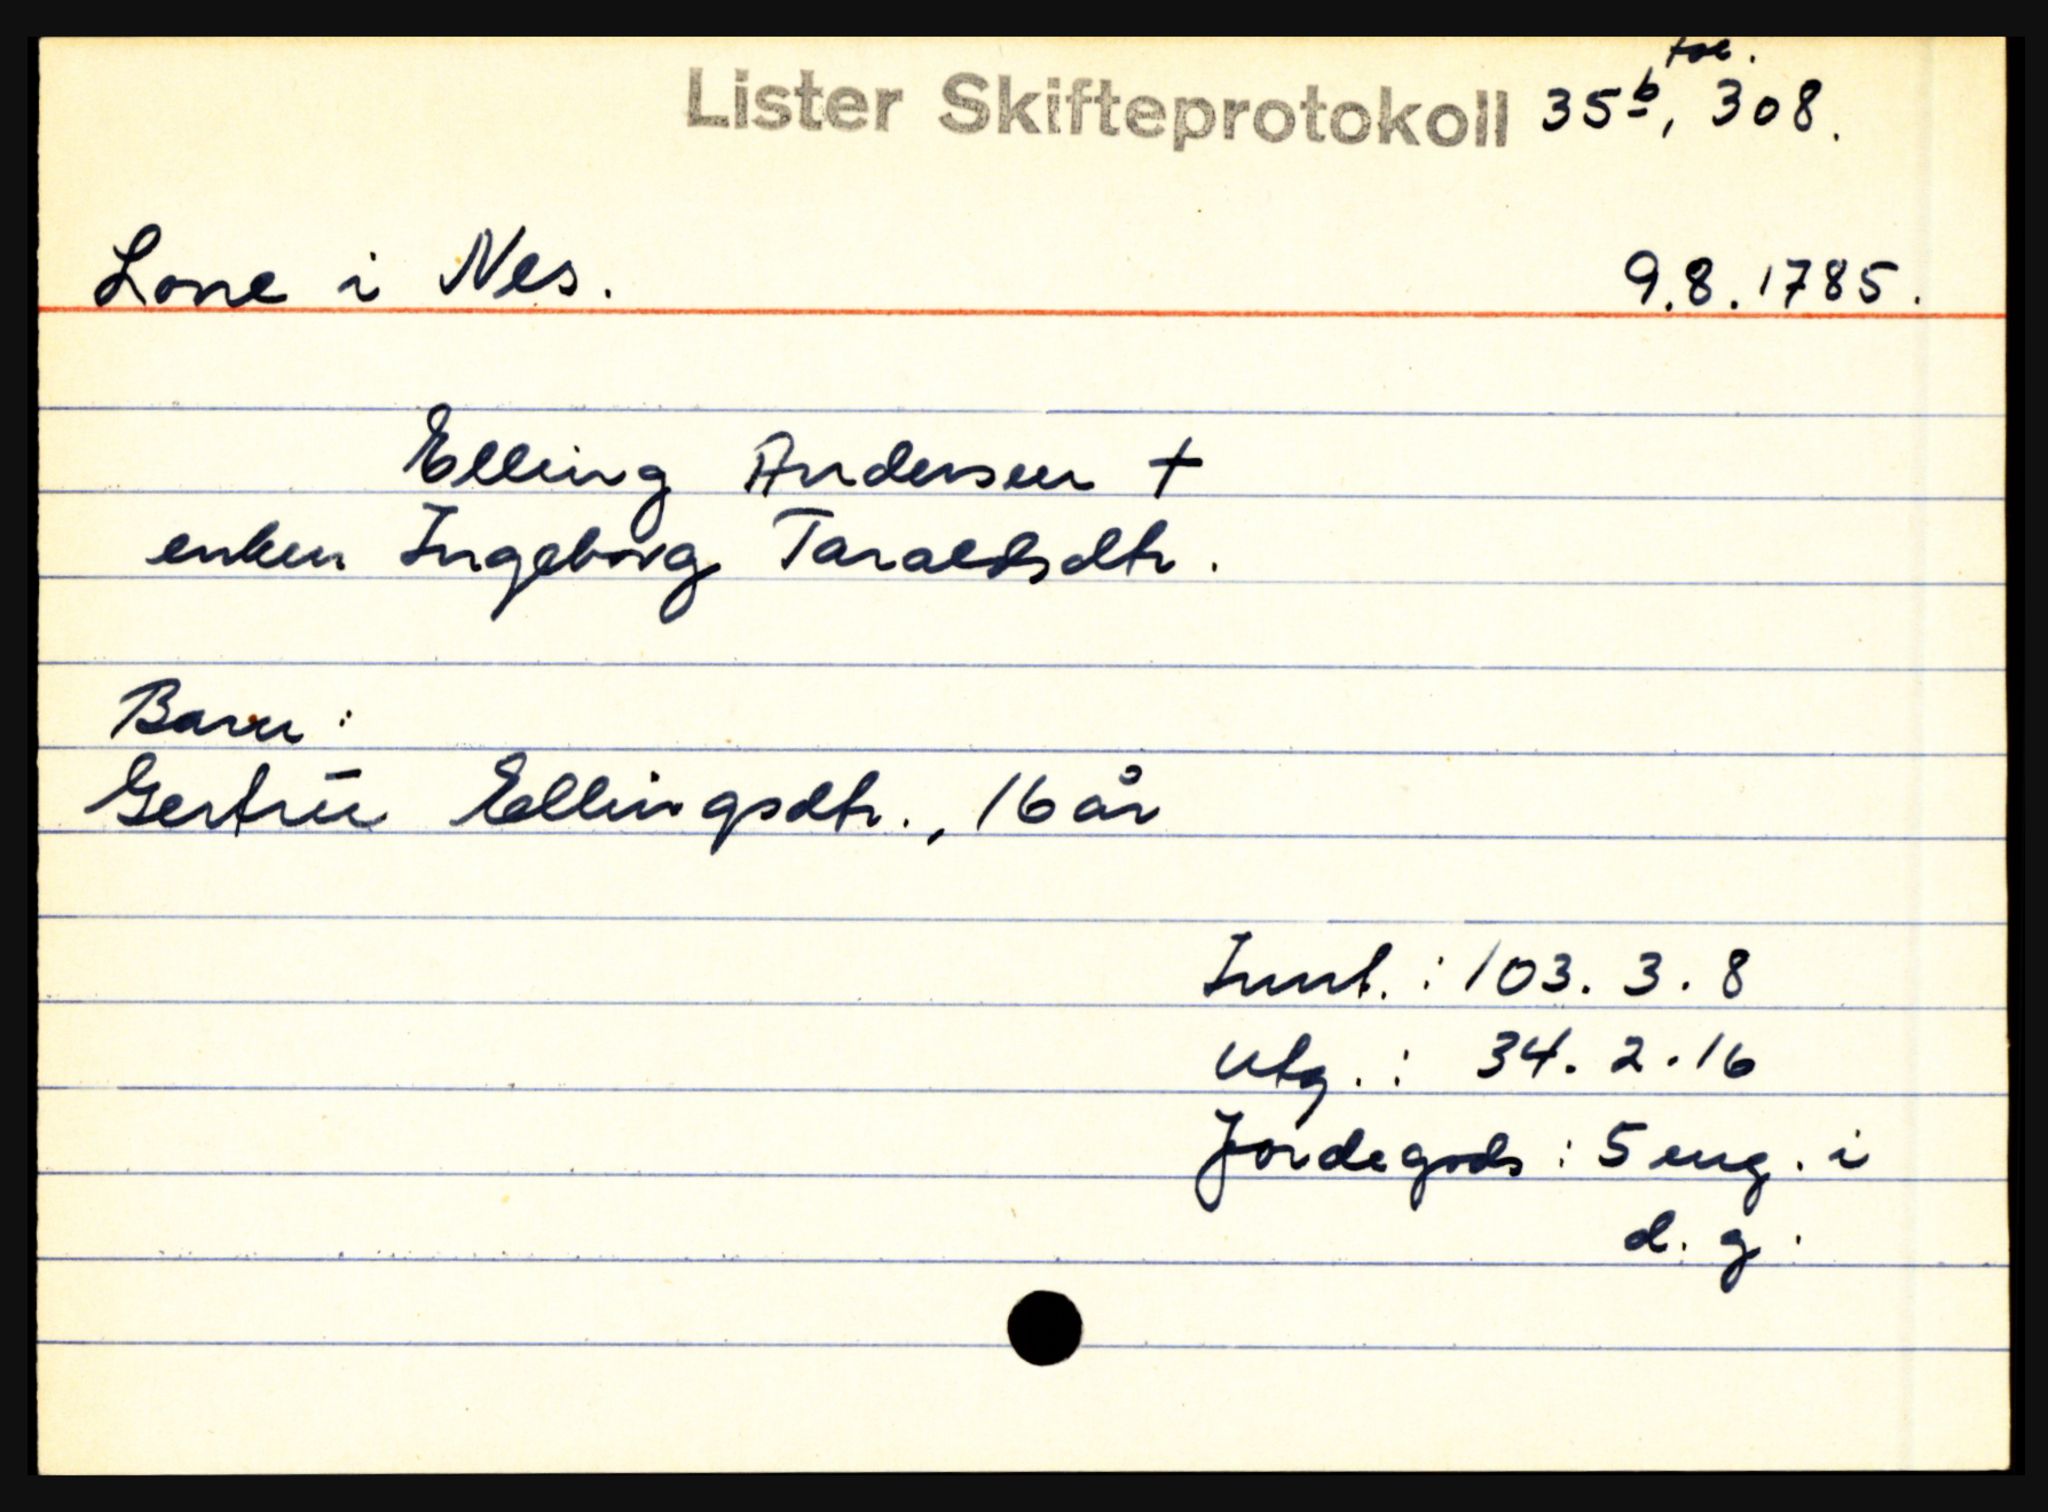 fol.
Lister Skifteprotokoll 35b, 308.
Lone i Nes. 9.8.1785.
Elling Andersen +
enken Ingeborg Taraldsdtr.
Barn:
Gertru Ellingsdtr., 16 år
Innt.: 103. 3. 8
Utg.: 34. 2. 16
Jordegods: 5 eng. i
d. g.